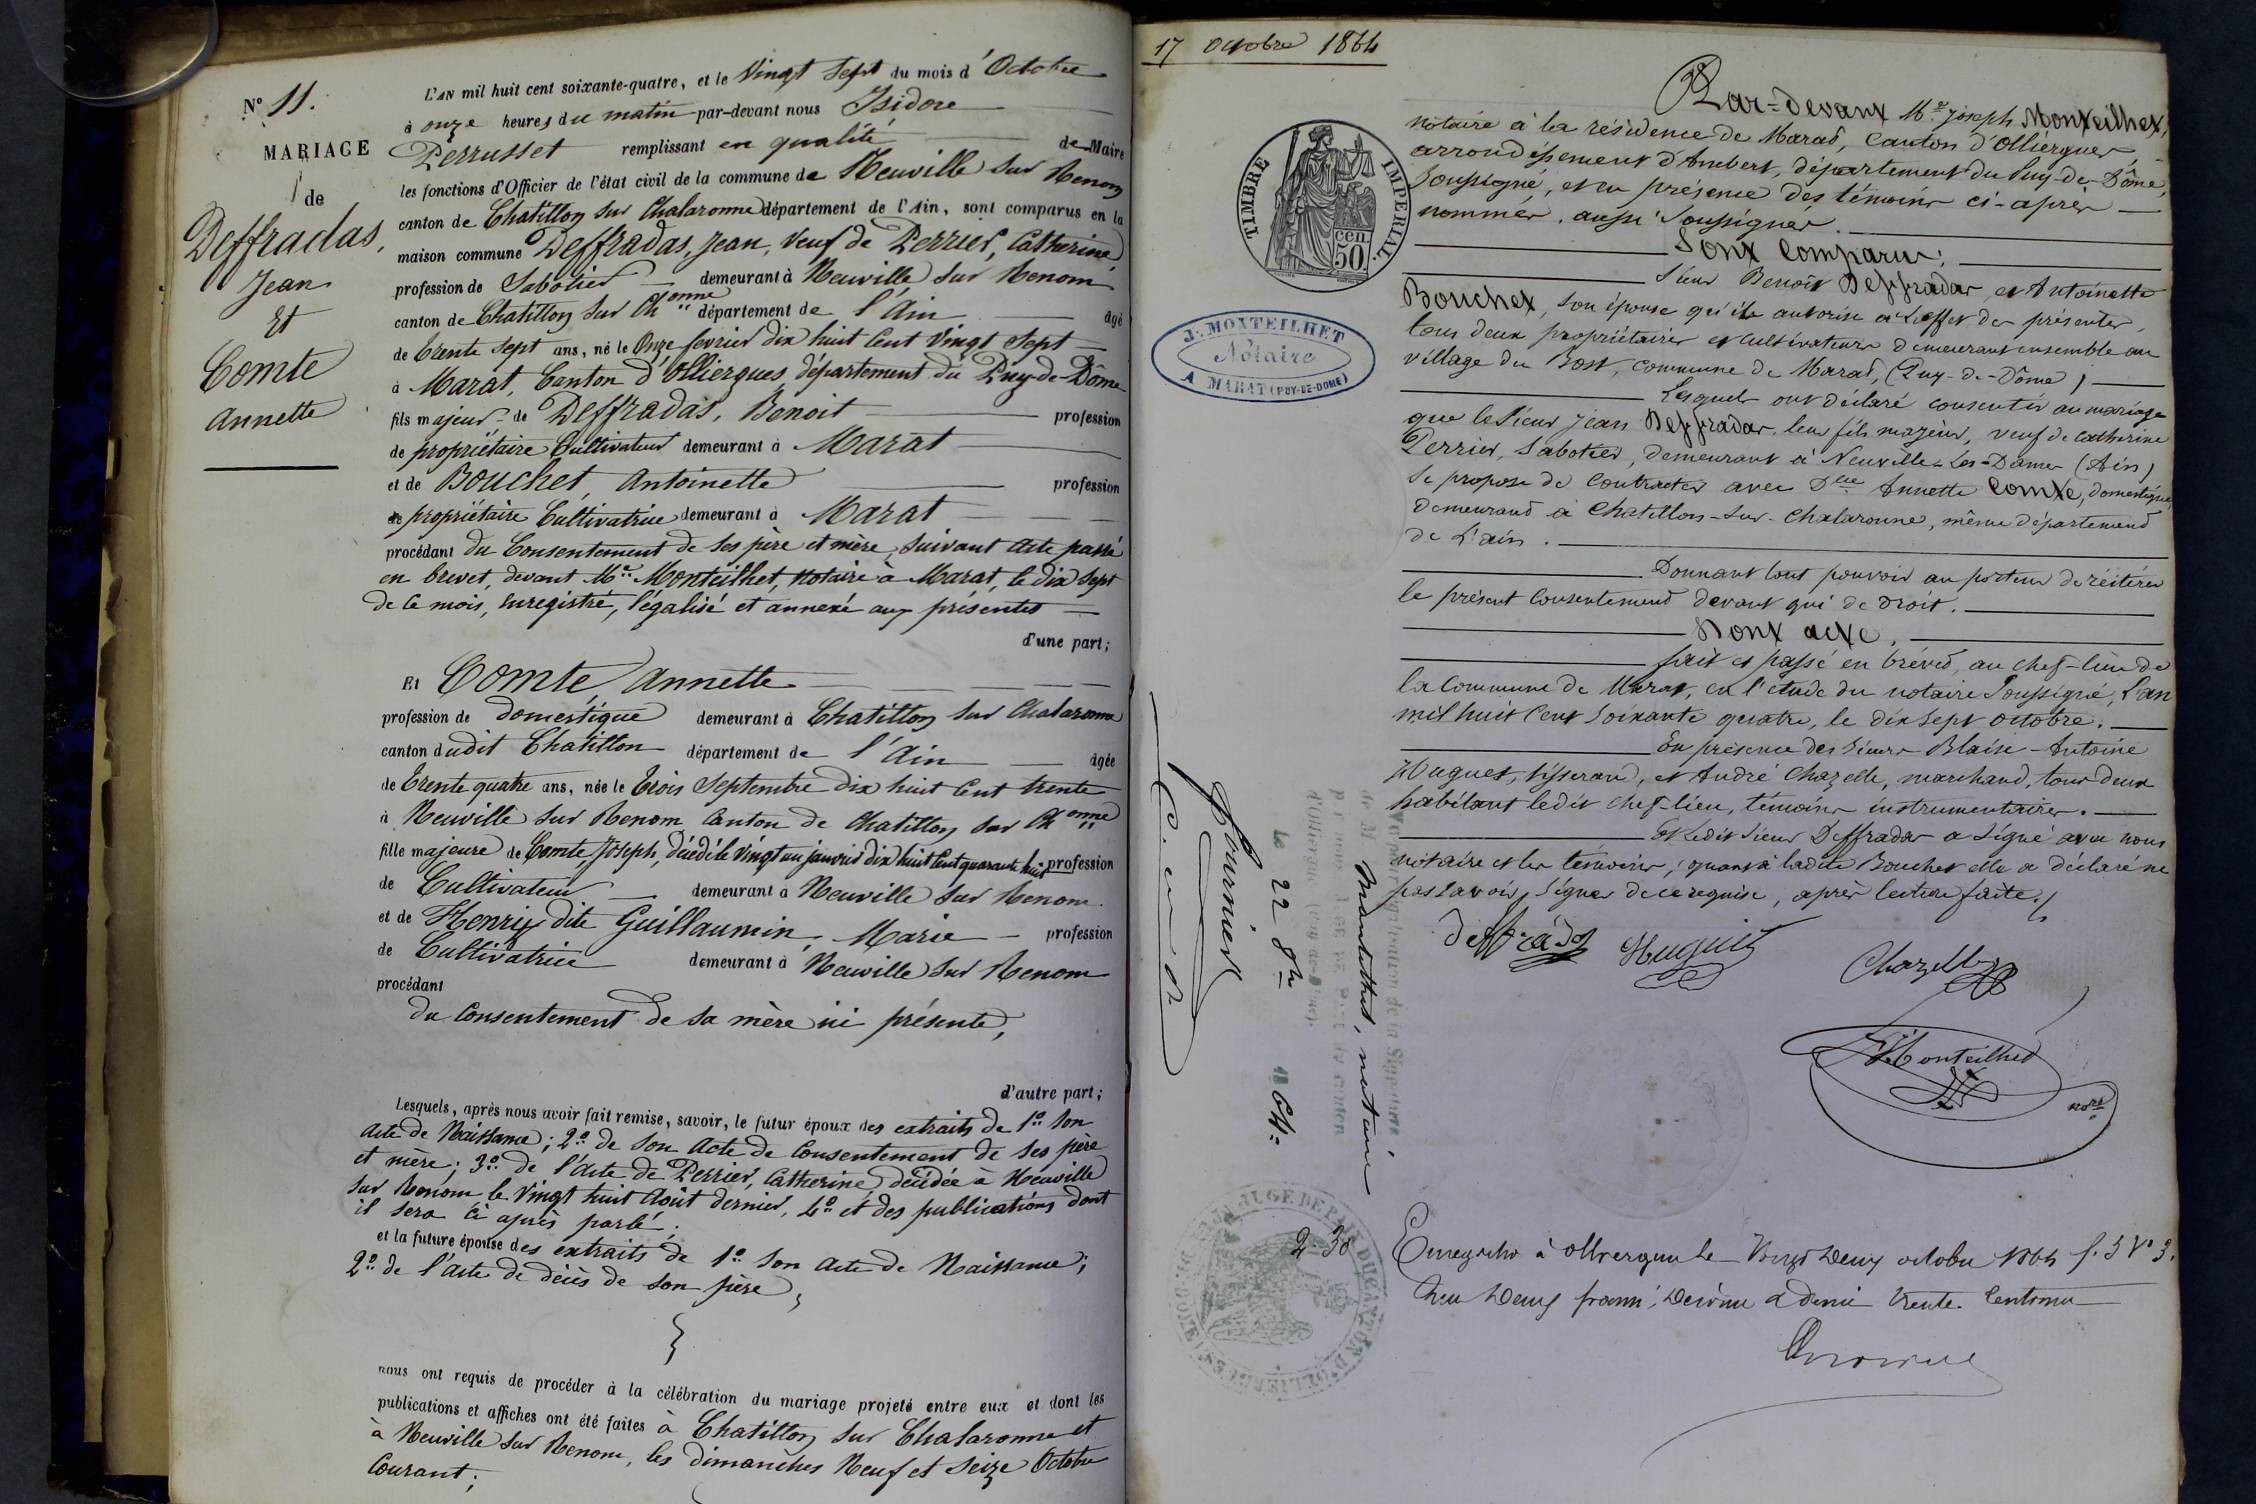 N° 11.
MARIAGE
de
Deffradas,
Jean
Et
Comte
Annette
L'AN mil huit cent soixante-quatre, et le Vingt Sept du mois d'Octobre
à onze heures du matin par-devant nous Isidore
Perrusset remplissant en qualité de Maire
les fonctions d'Officier de l'état civil de la commune de Neuville sur Renom
canton de Chatillon sur Chalaronne département de l'Ain, sont comparus en la
maison commune Deffradas, Jean, Veuf de Perrier, Catherine,
profession de Sabotier demeurant à Neuville sur Renom
canton de Chatillon sur Chonne département de l'Ain âgé
de trente sept ans, né le Onze fevrier dix huit Cent Vingt Sept
à Marat, Canton d'Olliergues, département du Puy-de-Dôme
fils majeur de Deffradas, Benoit profession
de propriétaire Cultivateur demeurant à Marat
et de Bouchet, Antoinette profession
de propriétaire Cultivatrice demeurant à Marat
procédant du Consentement de ses père et mère, suivant acte passé
en brevet, devant Me Monteilhet, Notaire à Marat, le dix sept
de ce mois, enregistré, légalisé et annexé aux présentes
d'une part;
Et Comte, Annette
profession de domestique demeurant à Chatillon sur Chalaronne
canton dudit Chatillon département de l'Ain âgée
de trente quatre ans, née le trois Septembre dix huit Cent trente
à Neuville sur Renom Canton de Chatillon sur Chonne
fille majeure de Comte Joseph, décédé le Vingt un janvier dix huit Cent quarante huit profession
de Cultivateur demeurant à Neuville sur Renom.
et de Henry dite Guillaumin, Marie profession
de Cultivatrice demeurant à Neuville sur Renom
procédant
du Consentement de sa mère ici présente,
d'autre part;
Lesquels, après nous avoir fait remise, savoir, le futur époux des extraits de 1° Son
acte de Naissance; 2° de son acte de Consentement de ses père
et mère; 3° de l'acte de Perrier, Catherine, décédée à Neuville
sur Renom le Vingt huit Août dernier, 4° et des publications dont
il sera ci après parlé;
et la future épouse des extraits de 1° Son acte de Naissance;
2° de l'acte de décès de son père;
nous ont requis de procéder à la célébration du mariage projeté entre eux et dont les
publications et affiches ont été faites à Chatillon sur Chalaronne et
à Neuville sur Renom, les dimanches Neuf et Seize Octobre
Courant;
17 octobre 1864
TIMBRE IMPERIAL
50 cen
J. MONTEILHET
Notaire
A MARAT (PUY-DE-DOME)
Par-devant Me Joseph Monteilhet,
notaire à la résidence de Marat, canton d'Olliergues
arrondissement d'Ambert, département du Puy-de-Dôme,
Soussigné, et en présence des témoins ci-après
nommés, aussi Soussignés.
Sont Comparus:
Sieur Benoit Deffradas, et Antoinette
Bouchet, son épouse qu'il autorise à l'effet des présentes,
tous deux propriétaires et cultivateurs demeurant ensemble au
village du Bost, commune de Marat, (Puy-de-Dôme)
Lesquels ont déclaré consentir au mariage
que le Sieur Jean Deffradas, leur fils majeur, veuf de Catherine
Perrier, Sabotier, demeurant à Neuville-Les-Dames (Ain)
Se propose de Contracter avec Dlle Annette Comte, domestique,
demeurant à Chatillon-Sur-Chalaronne, même département
de L'ain.
Donnant tout pouvoir au porteur de réitérer
le présent Consentement devant qui de Droit.
Dont acte.
fait et passé en brévet, au chef-lieu de
la Commune de Marat, en l'étude du notaire Soussigné, L'an
mil huit Cent Soixante quatre, le dix Sept octobre.
En présence des Sieurs Blaise-Antoine
Huguet, tisserand, et André Chazelle, marchand, tous deux
habitant ledit chef-lieu, témoins instrumentaires.
Et Ledit Sieur Deffradas a Signé avec nous
notaire et les témoins; quant à ladite Bouchet elle a déclaré ne
pas savoir Signer de ce requise, après lecture faite.
deffradas Huguet Chazelle
Monteilhet nore
Vu pour légalisation de la Signature
de M. Monteilhet, notaire
par nous JUGE DE PAIX du canton
d'Olliergues (Puy-de-Dôme).
Le 22 8bre 1864:
Fournier
JUGE DE PAIX DU CANTON D'OLLIERGUES
2-30
Enregistré à Olliergues le Vingt Deux octobre 1864 f. 5 Vo
Reçu Deux francs, Décime & demi trente Centimes